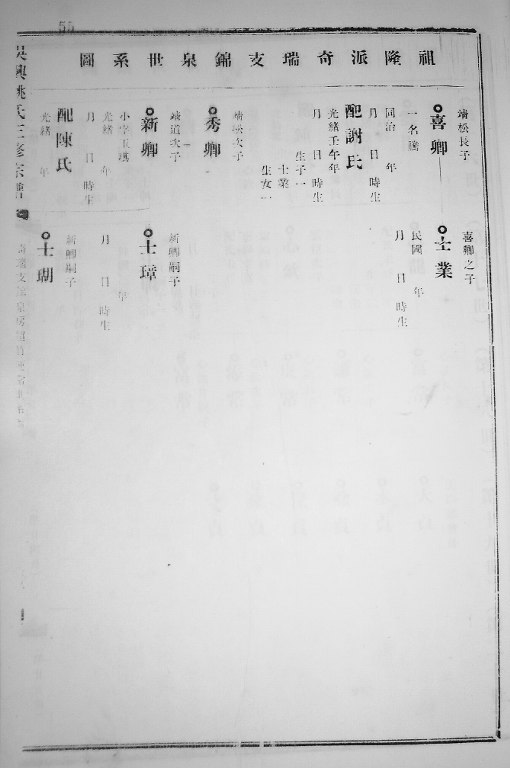 祖隆派奇瑞支錦泉世系圖
端松長子
喜卿
一名
同治 年
月 日 時生
配謝氏
光緒壬午年
月 日 時生
生子一
士業
生女一
喜卿之子
士業
民國 年
月 日 時生
端松次子
秀卿
端道次子
新卿
小字
光緒 年
月 日 時生
配陳氏
光緒 年
新卿嗣子
士璋
年
月 日 時生
新卿嗣子
士瑚
吳興姚氏三修宗譜